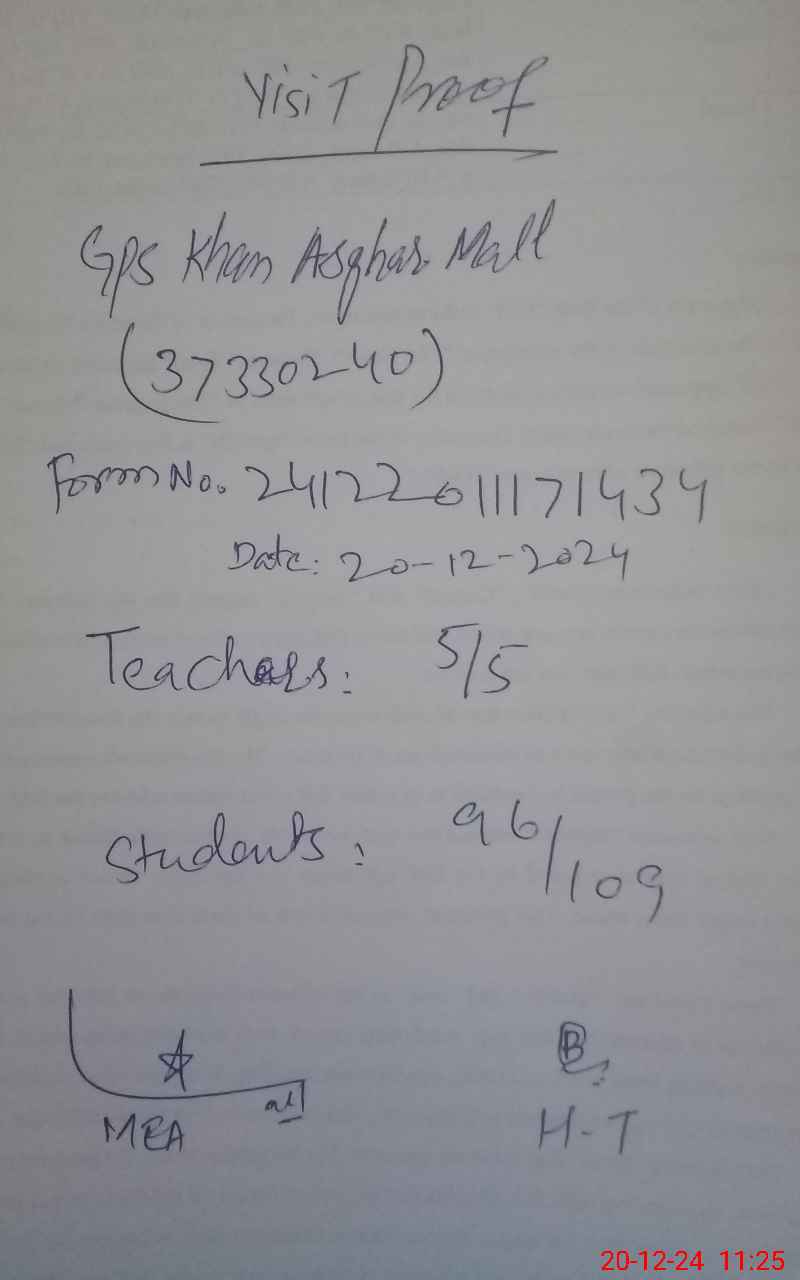 Visit Proof
GPS Khan Asghar Mall
(37330240)
Form No. 2412201171434
Date: 20-12-2024
Teachers: 5/5
Students: 96/109
MEA
H-T
20-12-24 11:25